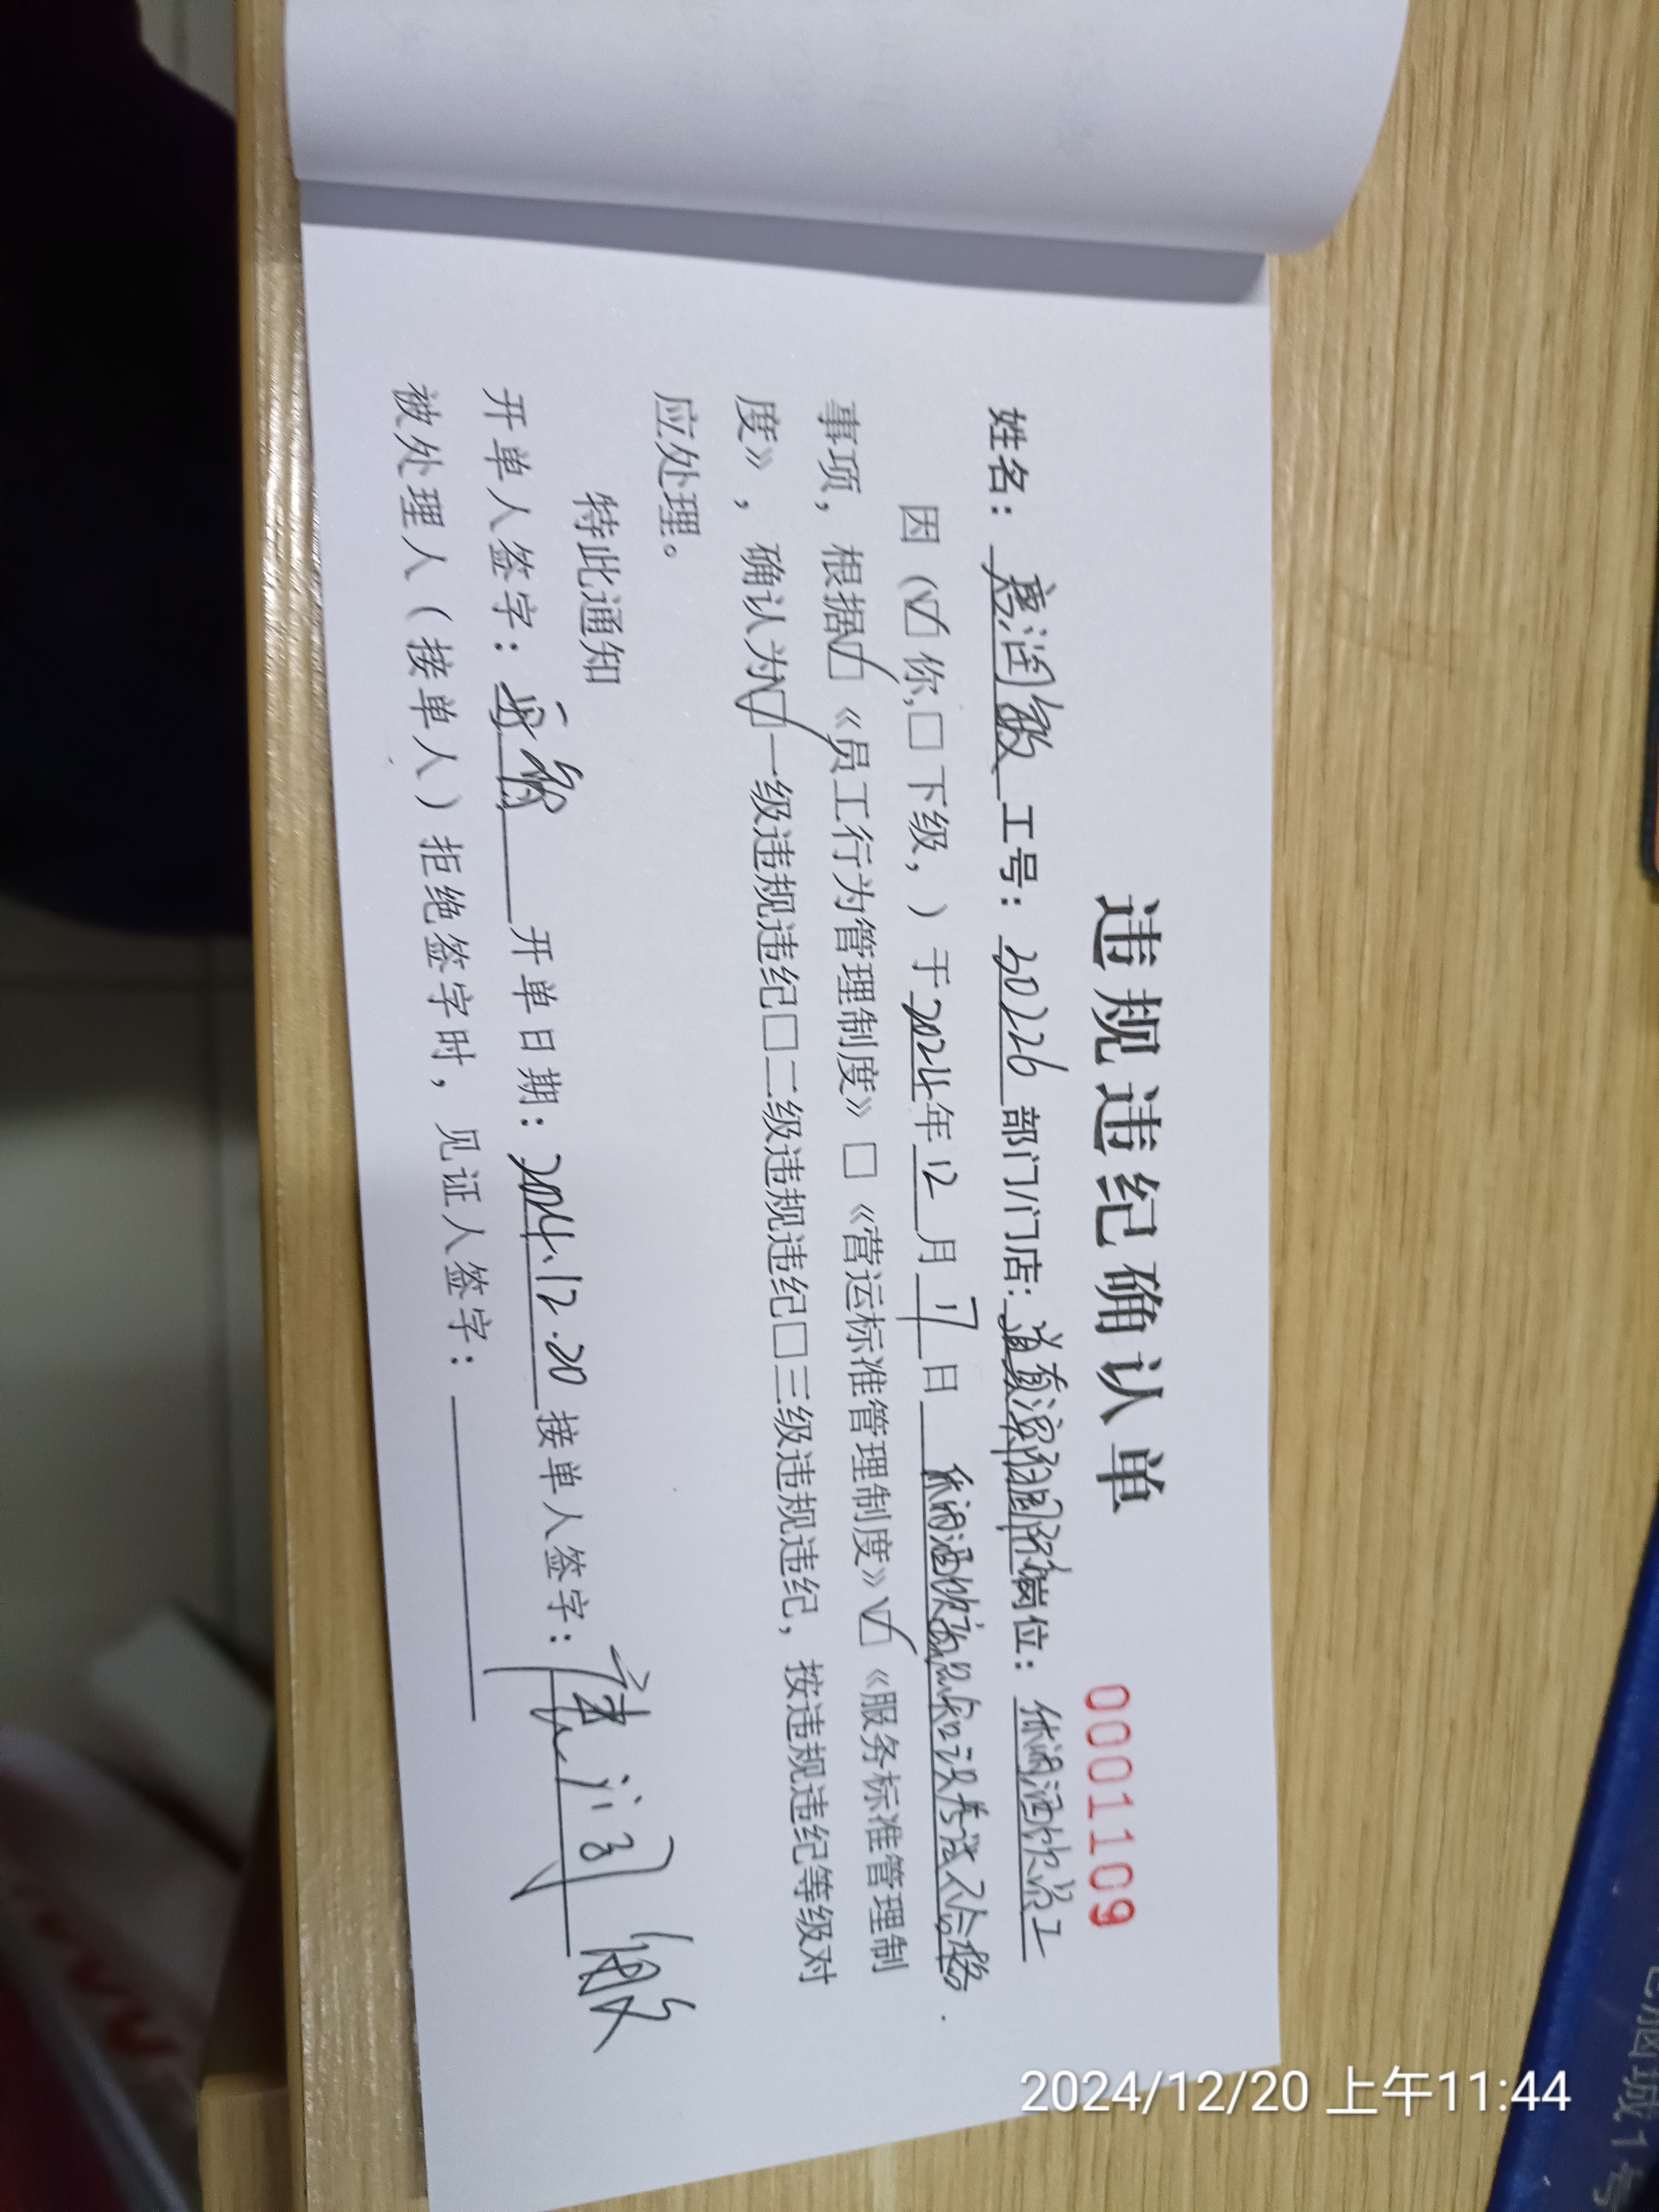 违规违纪确认单
0001109
姓名：唐润敏 工号：30226 部门/门店：道真 岗位：休闲酒饮员工
因（☑你，□下级，）于2024年12月17日 休闲酒饮商品知识考试不合格.
事项，根据☑《员工行为管理制度》□《营运标准管理制度》☑《服务标准管理制
度》，确认为☑一级违规违纪□二级违规违纪□三级违规违纪，按违规违纪等级对
应处理。
特此通知
开单人签字： 开单日期：2024.12.20 接单人签字：唐润敏
被处理人（接单人）拒绝签字时，见证人签字：
2024/12/20 上午11:44
城1号